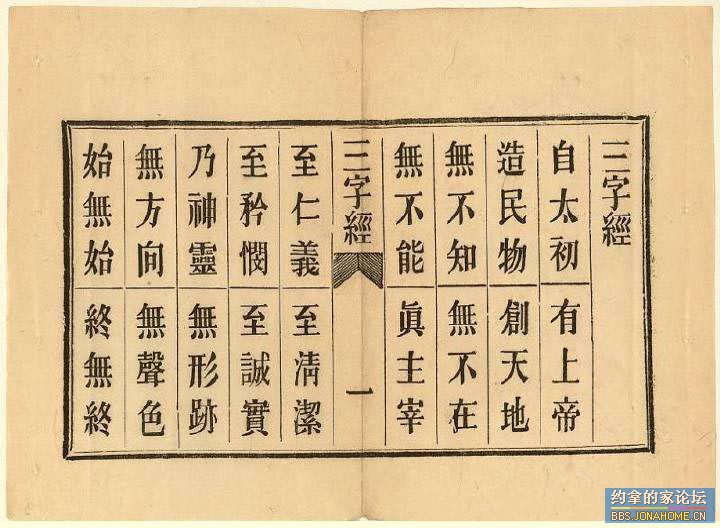 三字經
自太初 有上帝
造民物 創天地
無不知 無不在
無不能 眞主宰
三字經 一
至仁義 至清潔
至矜憫 至誠實
乃神靈 無形跡
無方向 無聲色
始無始 終無終
约拿的家论坛
BBS.JONAHOME.CN